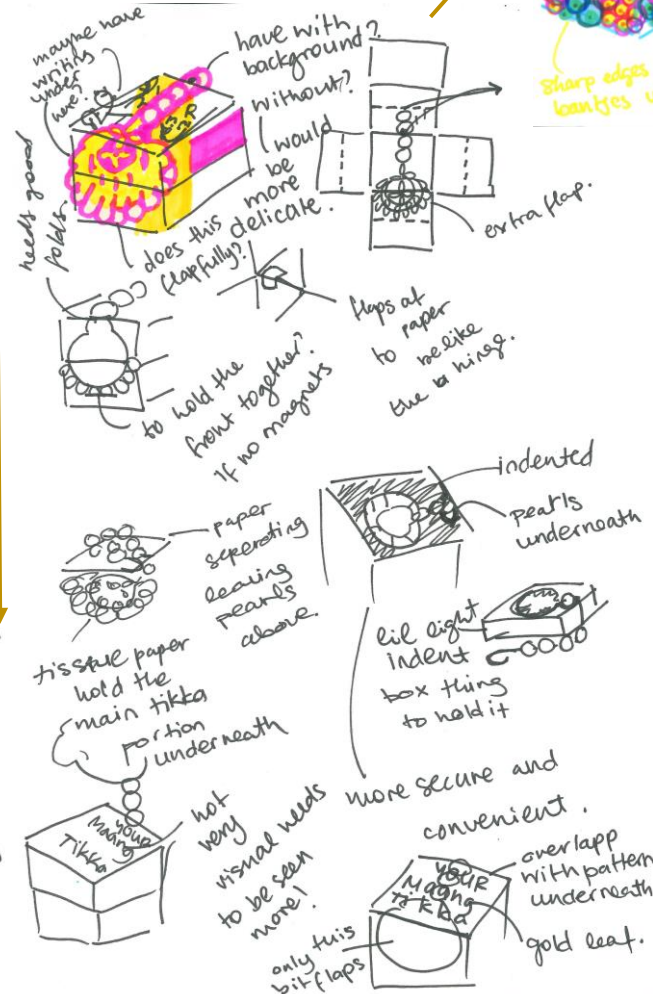 mayne have
writing
under
here?
have with
background?
without?
would
be
more
delicate.
sharp edges
bantjes
needs good
folds
does this
flapfully?
extra flap.
flaps at
to paper
be like
the hinge.
to hold the
front together?
if no magnets
indented
pearls
underneath
paper
seperating
leaving
pearls
above.
tissue paper
hold the
main tikka
portion
underneath
lil light
indent
box thing
to hold it
more secure and
convenient.
YOUR
Maang
Tikka
not
very
visual needs
to be seen
more!
YOUR
Maang
Tikka
overlapp
with pattern
underneath
gold leaf.
only this
bit flaps